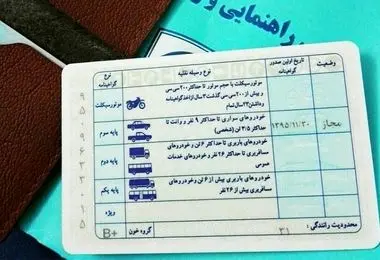 راهنمایی و
وضعیت
تاریخ اولین صدور گواهینامه
نوع وسیله نقلیه
نوع گواهینامه
موتورسیکلت با حجم موتور تا حداکثر ۲۰۰ سی سی
و بیش از ۲۰۰ سی سی گذشت ۳ سال از اخذ گواهینامه
و داشتن ۲۳ سال تمام
موتورسیکلت
مجاز
۱۳۹۵/۱۱/۳۰
خودروهای سواری تا حداکثر ۹ نفر و وانت تا
حداکثر ۳/۵ تن (شخصی)
پایه سوم
خودروهای باربری تا حداکثر ۶ تن و خودروهای
مسافربری تا حداکثر ۲۶ نفر و خودروهای خدمات
عمومی
پایه دوم
خودروهای باربری بیش از ۶ تن و خودروهای
مسافربری بیش از ۲۶ نفر
پایه یکم
ویژه
محدودیت رانندگی :
۳۱
گروه خون :
B+